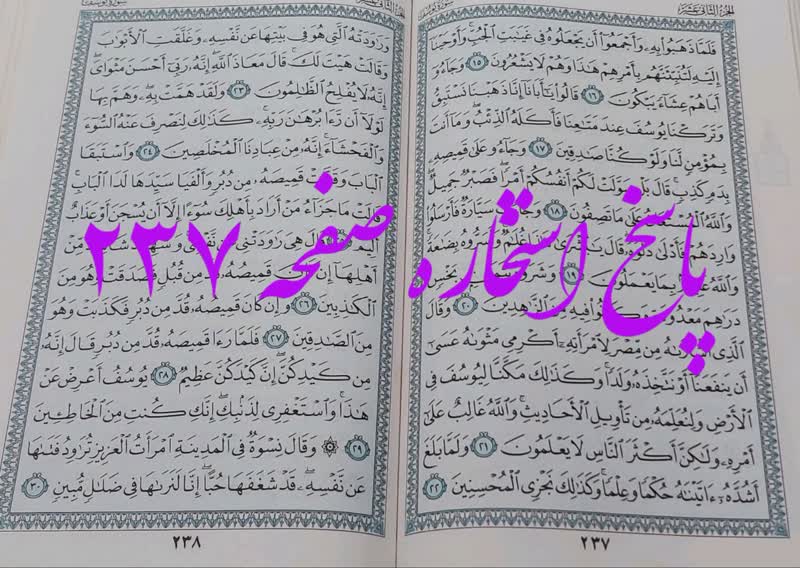 الجزء الثاني عشر
فَلَمَّا ذَهَبُوا۟ بِهِۦ وَأَجْمَعُوٓا۟ أَن يَجْعَلُوهُ فِى غَيَٰبَتِ ٱلْجُبِّ ۚ وَأَوْحَيْنَآ
إِلَيْهِ لَتُنَبِّئَنَّهُم بِأَمْرِهِمْ هَٰذَا وَهُمْ لَا يَشْعُرُونَ ١٥ وَجَآءُوٓ
أَبَاهُمْ عِشَآءً يَبْكُونَ ١٦ قَالُوا۟ يَٰٓأَبَانَآ إِنَّا ذَهَبْنَا نَسْتَبِقُ
وَتَرَكْنَا يُوسُفَ عِندَ مَتَٰعِنَا فَأَكَلَهُ ٱلذِّئْبُ ۖ وَمَآ أَنتَ
بِمُؤْمِنٍ لَّنَا وَلَوْ كُنَّا صَٰدِقِينَ ١٧ وَجَآءُو عَلَىٰ قَمِيصِهِۦ
بِدَمٍ كَذِبٍ ۚ قَالَ بَلْ سَوَّلَتْ لَكُمْ أَنفُسُكُمْ أَمْرًا ۖ فَصَبْرٌ جَمِيلٌ ۖ
وَٱللَّهُ ٱلْمُسْتَعَانُ عَلَىٰ مَا تَصِفُونَ ١٨ وَجَآءَتْ سَيَّارَةٌ فَأَرْسَلُوا۟
وَارِدَهُمْ فَأَدْلَىٰ دَلْوَهُۥ ۖ قَالَ يَٰبُشْرَىٰ هَٰذَا غُلَٰمٌ ۚ وَأَسَرُّوهُ بِضَٰعَةً ۚ
وَٱللَّهُ عَلِيمٌۢ بِمَا يَعْمَلُونَ ١٩ وَشَرَوْهُ بِثَمَنٍۭ بَخْسٍ
دَرَٰهِمَ مَعْدُودَةٍ وَكَانُوا۟ فِيهِ مِنَ ٱلزَّٰهِدِينَ ٢٠ وَقَالَ
ٱلَّذِى ٱشْتَرَىٰهُ مِن مِّصْرَ لِٱمْرَأَتِهِۦٓ أَكْرِمِى مَثْوَىٰهُ عَسَىٰٓ
أَن يَنفَعَنَآ أَوْ نَتَّخِذَهُۥ وَلَدًا ۚ وَكَذَٰلِكَ مَكَّنَّا لِيُوسُفَ فِى
ٱلْأَرْضِ وَلِنُعَلِّمَهُۥ مِن تَأْوِيلِ ٱلْأَحَادِيثِ ۚ وَٱللَّهُ غَالِبٌ عَلَىٰٓ
أَمْرِهِۦ وَلَٰكِنَّ أَكْثَرَ ٱلنَّاسِ لَا يَعْلَمُونَ ٢١ وَلَمَّا بَلَغَ
أَشُدَّهُۥٓ ءَاتَيْنَٰهُ حُكْمًا وَعِلْمًا ۚ وَكَذَٰلِكَ نَجْزِى ٱلْمُحْسِنِينَ ٢٢
٢٣٧
وَرَٰوَدَتْهُ ٱلَّتِى هُوَ فِى بَيْتِهَا عَن نَّفْسِهِۦ وَغَلَّقَتِ ٱلْأَبْوَٰبَ
وَقَالَتْ هَيْتَ لَكَ ۚ قَالَ مَعَاذَ ٱللَّهِ ۖ إِنَّهُۥ رَبِّىٓ أَحْسَنَ مَثْوَاىَ ۖ
إِنَّهُۥ لَا يُفْلِحُ ٱلظَّٰلِمُونَ ٢٣ وَلَقَدْ هَمَّتْ بِهِۦ ۖ وَهَمَّ بِهَا
لَوْلَآ أَن رَّءَا بُرْهَٰنَ رَبِّهِۦ ۚ كَذَٰلِكَ لِنَصْرِفَ عَنْهُ ٱلسُّوٓءَ
وَٱلْفَحْشَآءَ ۚ إِنَّهُۥ مِنْ عِبَادِنَا ٱلْمُخْلَصِينَ ٢٤ وَٱسْتَبَقَا
ٱلْبَابَ وَقَدَّتْ قَمِيصَهُۥ مِن دُبُرٍ وَأَلْفَيَا سَيِّدَهَا لَدَا ٱلْبَابِ ۚ
قَالَتْ مَا جَزَآءُ مَنْ أَرَادَ بِأَهْلِكَ سُوٓءًا إِلَّآ أَن يُسْجَنَ أَوْ عَذَابٌ
أَلِيمٌ ٢٥ قَالَ هِىَ رَٰوَدَتْنِى عَن نَّفْسِى ۚ وَشَهِدَ شَاهِدٌ مِّنْ
أَهْلِهَآ إِن كَانَ قَمِيصُهُۥ قُدَّ مِن قُبُلٍ فَصَدَقَتْ وَهُوَ مِنَ
ٱلْكَٰذِبِينَ ٢٦ وَإِن كَانَ قَمِيصُهُۥ قُدَّ مِن دُبُرٍ فَكَذَبَتْ وَهُوَ
مِنَ ٱلصَّٰدِقِينَ ٢٧ فَلَمَّا رَءَا قَمِيصَهُۥ قُدَّ مِن دُبُرٍ قَالَ إِنَّهُۥ
مِن كَيْدِكُنَّ ۖ إِنَّ كَيْدَكُنَّ عَظِيمٌ ٢٨ يُوسُفُ أَعْرِضْ عَنْ
هَٰذَا ۚ وَٱسْتَغْفِرِى لِذَنۢبِكِ ۖ إِنَّكِ كُنتِ مِنَ ٱلْخَاطِـِٔينَ
٢٩ ۞ وَقَالَ نِسْوَةٌ فِى ٱلْمَدِينَةِ ٱمْرَأَتُ ٱلْعَزِيزِ تُرَٰوِدُ فَتَىٰهَا
عَن نَّفْسِهِۦ ۖ قَدْ شَغَفَهَا حُبًّا ۖ إِنَّا لَنَرَىٰهَا فِى ضَلَٰلٍ مُّبِينٍ ٣٠
٢٣٨
پاسخ استخاره صفحه ۲۳۷